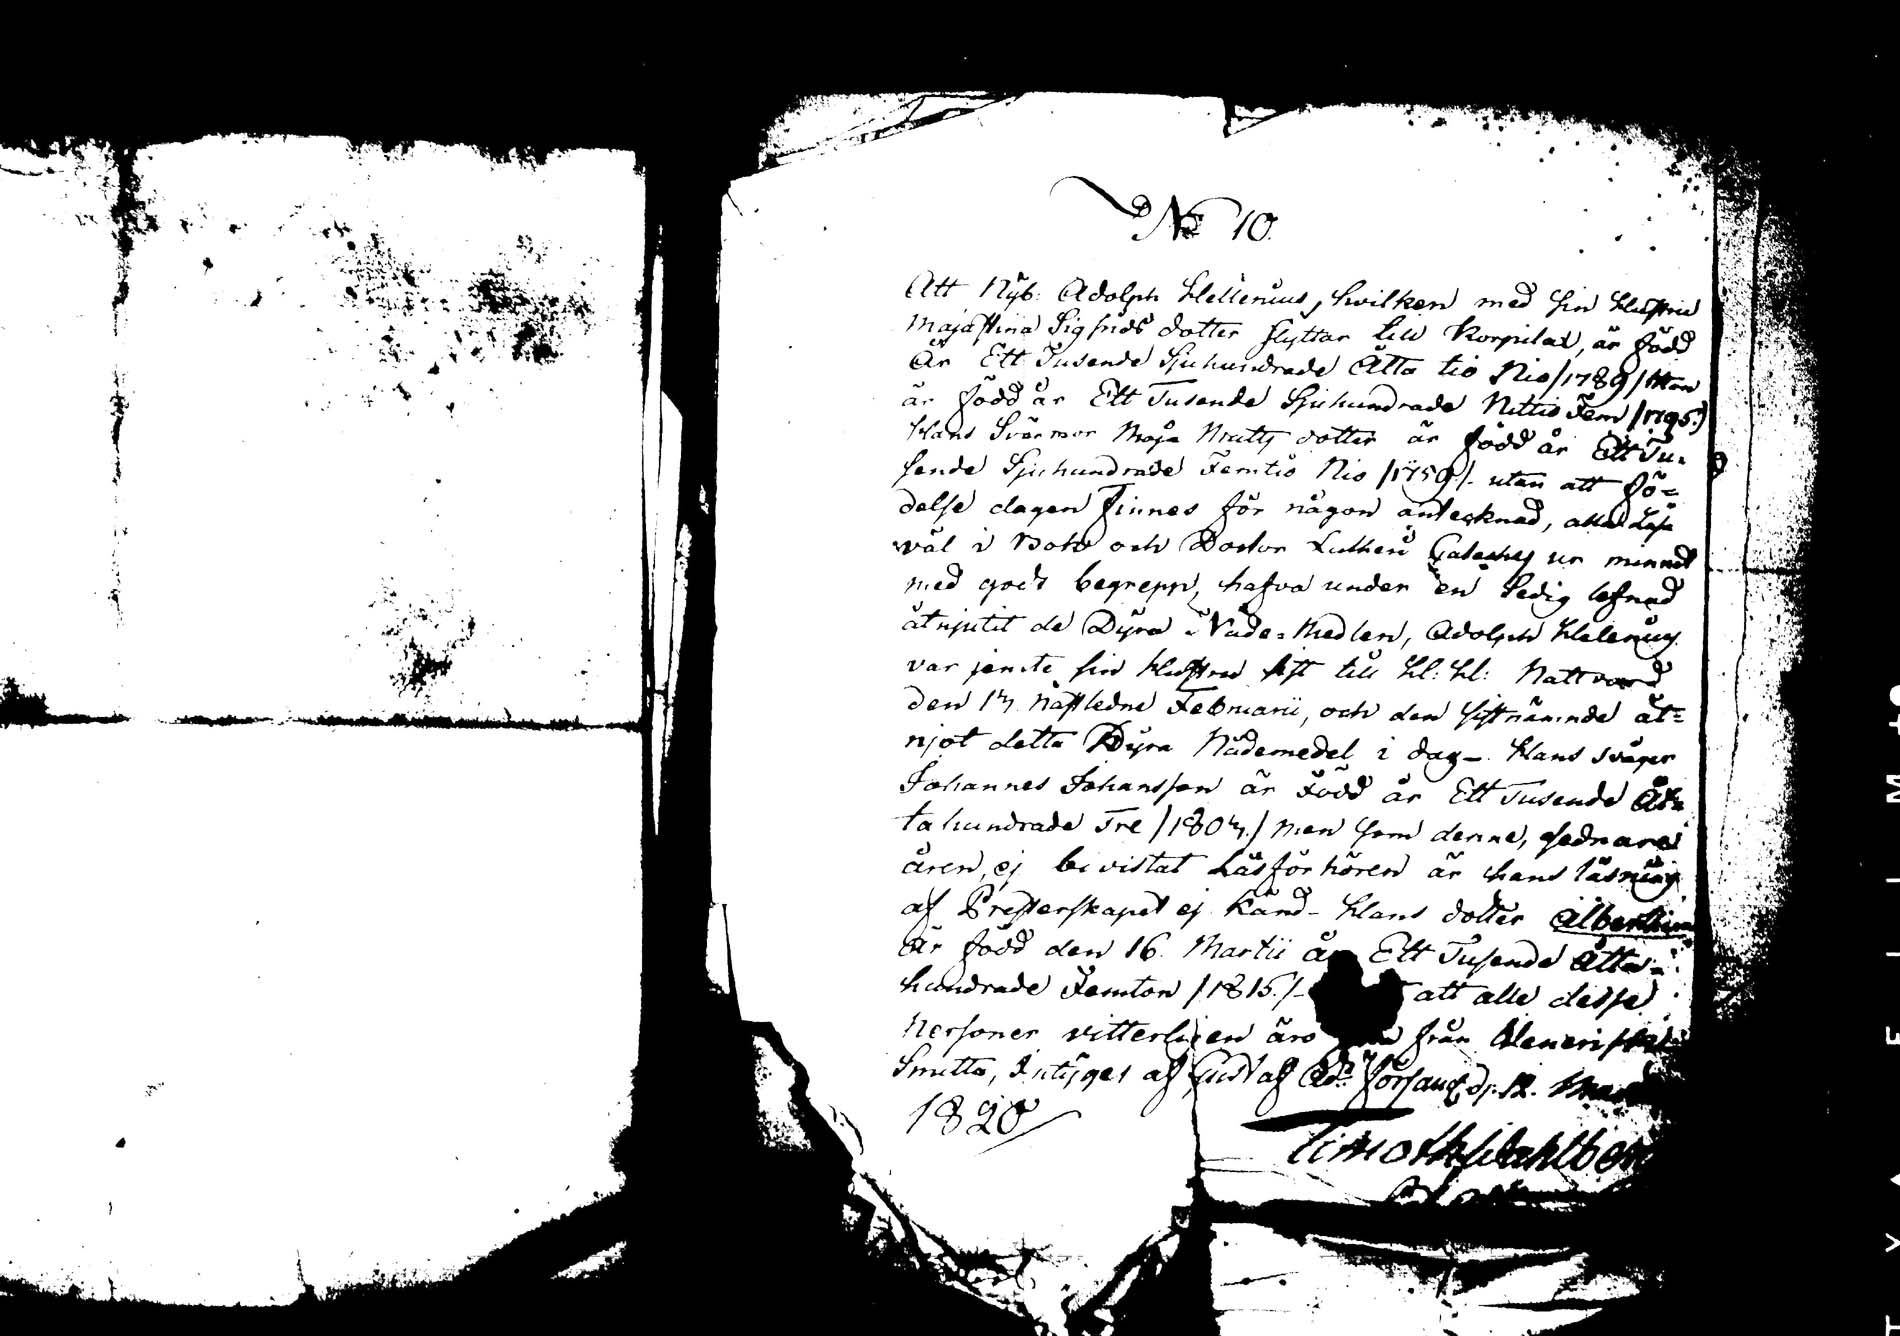 No 10.
Att Nyb. Adolph Hellenius, hvilken med sin Hustru
Maja Stina Sigfrids dotter flyttar till Korpilax, är född
År Ett Tusende Sjuhundrade Åtta tio Nio /1789/ Hon
är född år Ett Tusende Sjuhundrade Nittio Fem /1795./
Hans Svärmor Maja Matts dotter är född år Ett Tu-
sende Sjuhundrade Femtio Nio /1759/- utan att fö-
delse dagen finnes för någon antecknad, alla Läsa
väl i Bok och Doctor Lutheri Cateches ur minnet
med godt begrepp, hafva under en Sedig lefnad
åtnjutit de Dyra Nåde-Medlen, Adolph Helenius
var jemte sin Hustru sist till H: H: Nattvard
den 13 nästledne Februarii, och den sistnämnde åt-
njöt detta Dyra Nådemedel i dag-. Hans svåger
Johannes Johansson är Född år Ett Tusende Åt-
ta hundrade Tre /1803./ men som denne, sednare
åren, ej bevistat Läsförhören är hans läsning
af Presterskapet ej känd- Hans dotter Albertina
är född den 16. Martii år Ett Tusende Åtta-
hundrade Femton /1815./- att alle desse
Personer vitterligen äro från Veneriska
Smitta, Intygas af Gustaf Ad. församl. d. 12. Martii
1820
Timoth. Wahlberg